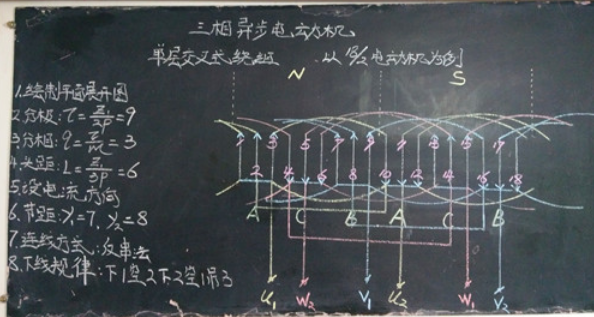 三相异步电动机
单层交叉式绕组 以18/2电动机为例
N S
1.绘制平面展开图
2.分极:τ=Z/2P=9
3.分相:q=Z/2Pm=3
4.头距:L=Z/3P=6
5.设电流方向
6.节距:Y₁=7, Y₂=8
7.连线方式:反串法
8.下线规律:下1空2下2空1吊3
2 4 6 8 10 12 14 16 18
A C B A C B
U₁ W₂ V₁ U₂ W₁ V₂